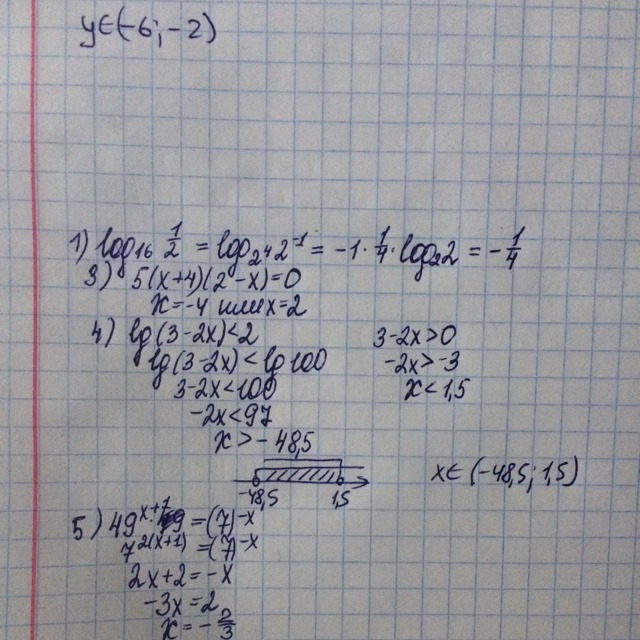 y∈(-6; -2)
1) log₁₆ 1/2 = log₂⁴ 2⁻¹ = -1 · 1/4 · log₂2 = -1/4
3) 5(x+4)(2-x)=0
x=-4 или x=2
4) lg(3-2x)<2 3-2x>0
lg(3-2x)<lg100 -2x>-3
3-2x<100 x<1,5
-2x<97
x>-48,5
-48,5 1,5 x∈(-48,5; 1,5)
5) 49ˣ⁺¹ = (7)⁻ˣ
7²⁽ˣ⁺¹⁾ = (7)⁻ˣ
2x+2=-x
-3x=2
x=-2/3